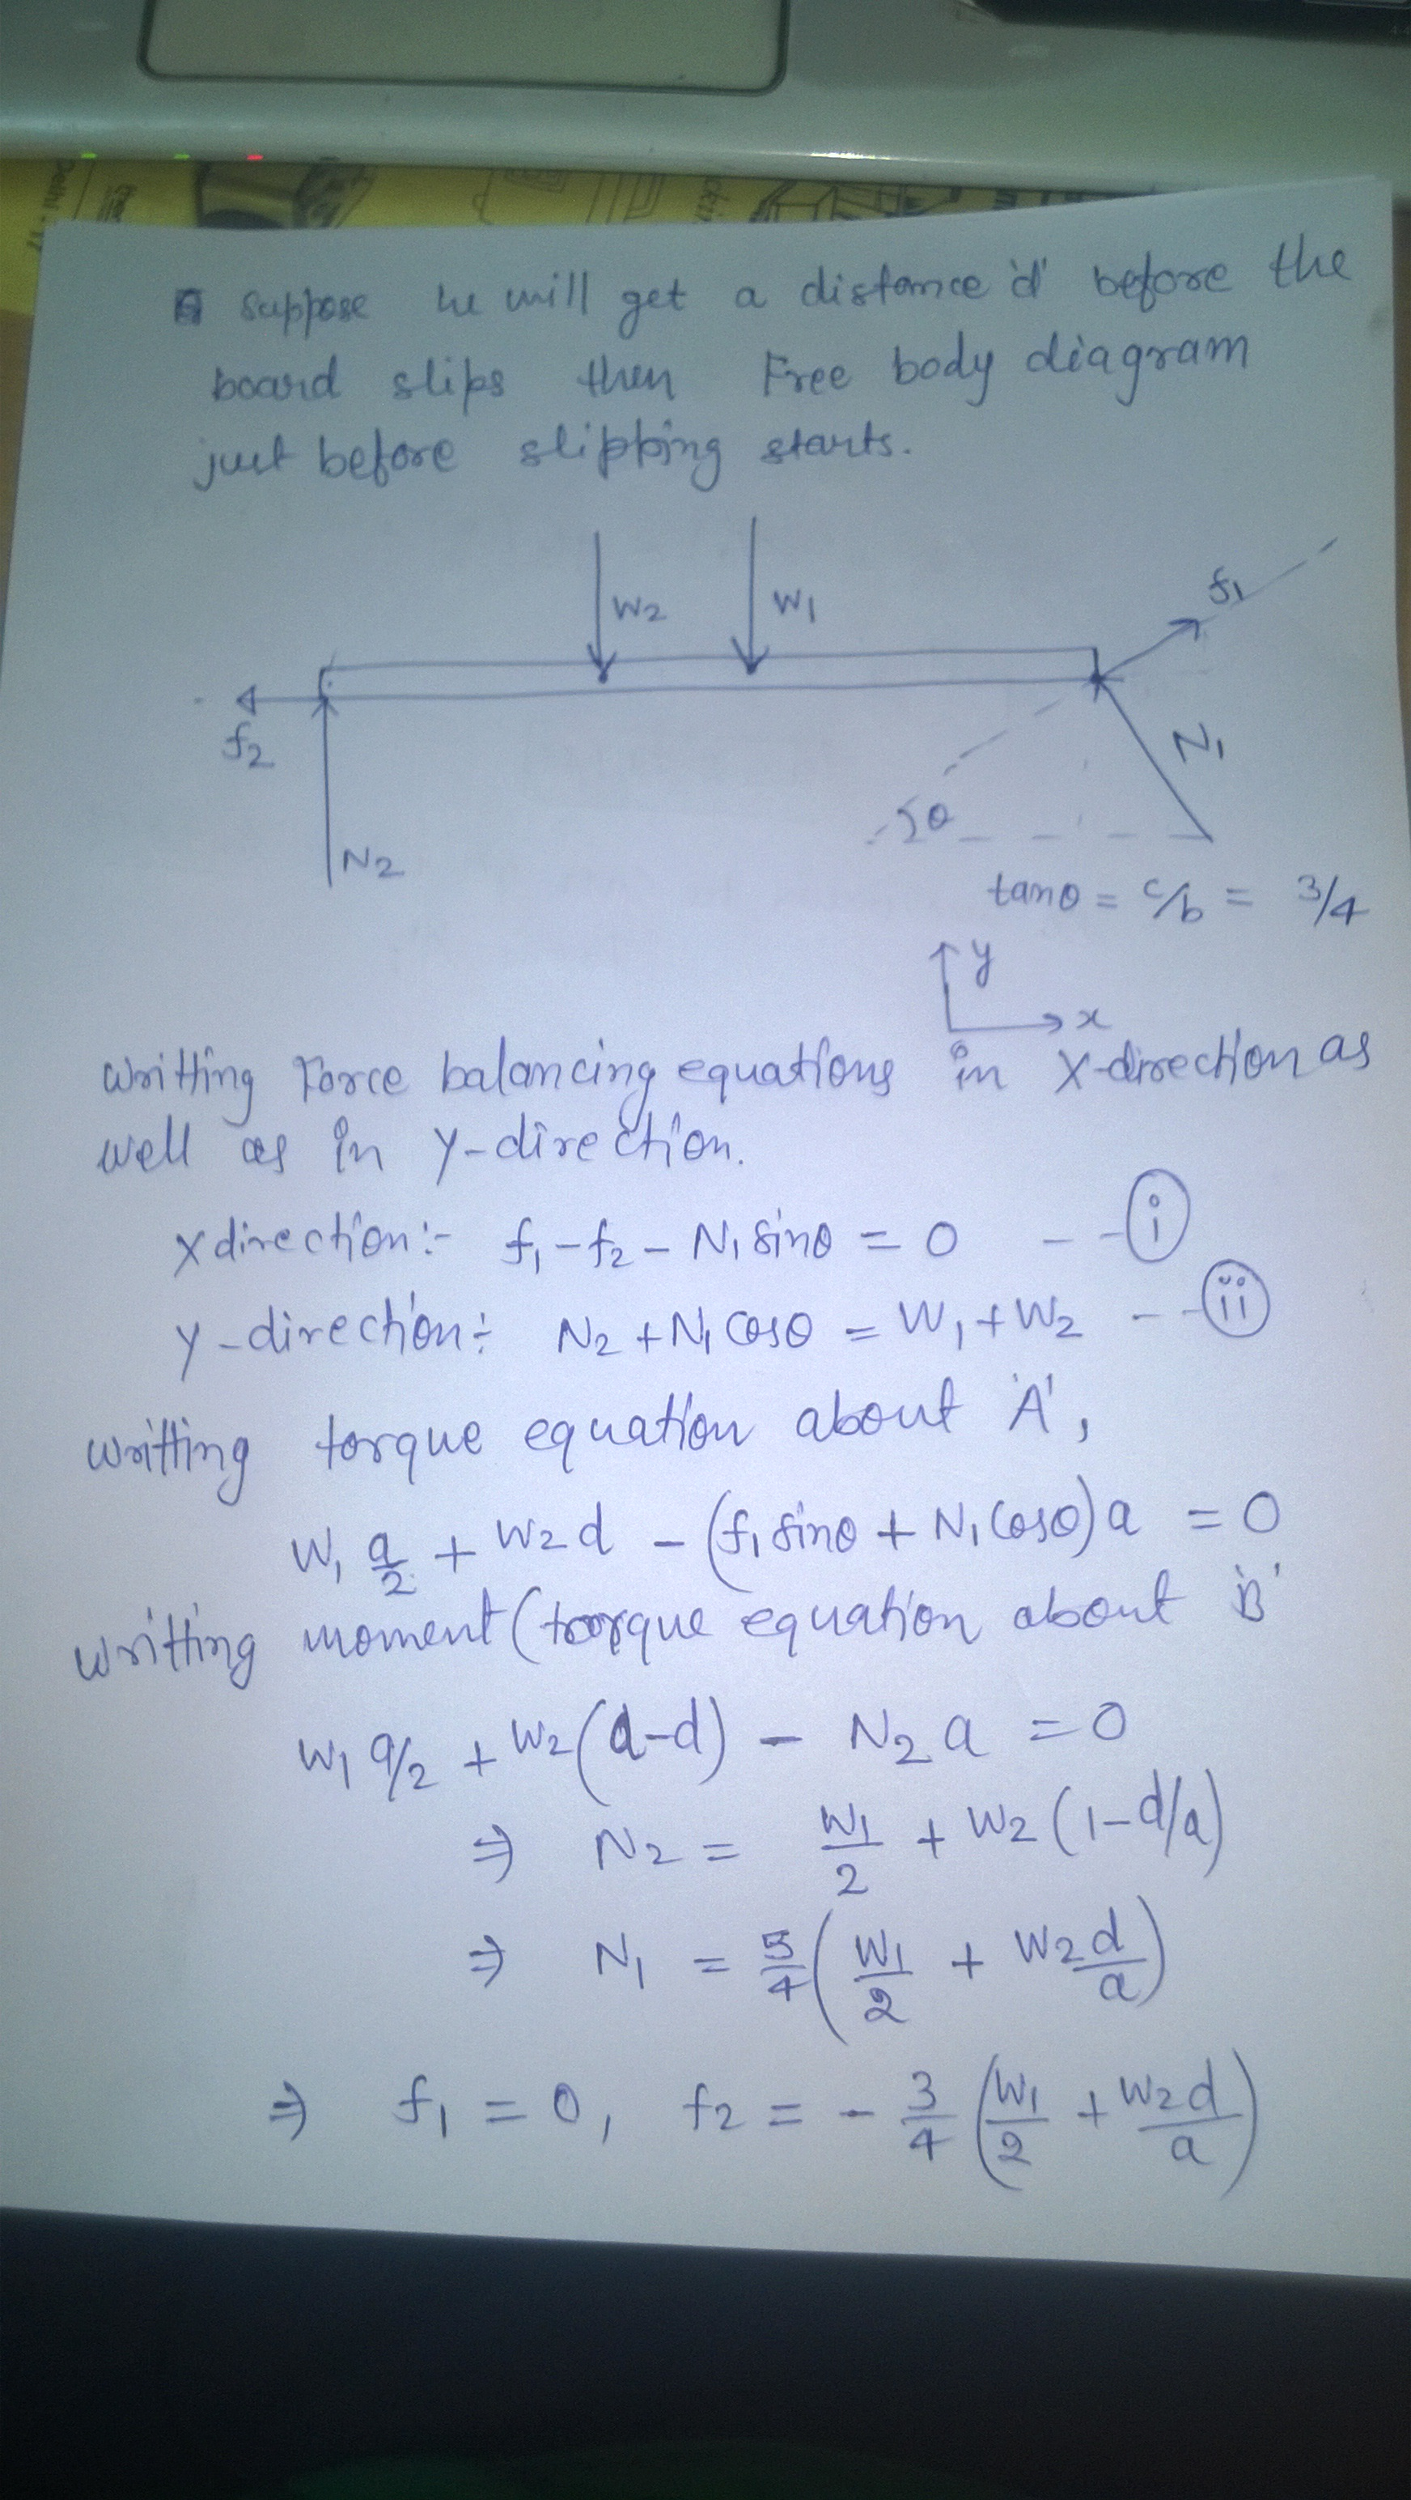 suppose he will get a distance 'd' before the
board slips then Free body diagram
just before slipping starts.
W2 W1 f1
f2 N1
N2 θ
tanθ = c/b = 3/4
y
x
writting Force balancing equations in X-direction as
well as in Y-direction.
X direction:- f1 - f2 - N1 sinθ = 0 -- (i)
Y-direction:- N2 + N1 cosθ = W1 + W2 -- (ii)
writting torque equation about 'A',
W1 a/2 + W2 d - (f1 sinθ + N1 cosθ) a = 0
writting moment (torque equation about 'B'
W1 a/2 + W2 (a-d) - N2 a = 0
⇒ N2 = W1/2 + W2 (1 - d/a)
⇒ N1 = 5/4 (W1/2 + W2 d/a)
⇒ f1 = 0, f2 = - 3/4 (W1/2 + W2 d/a)